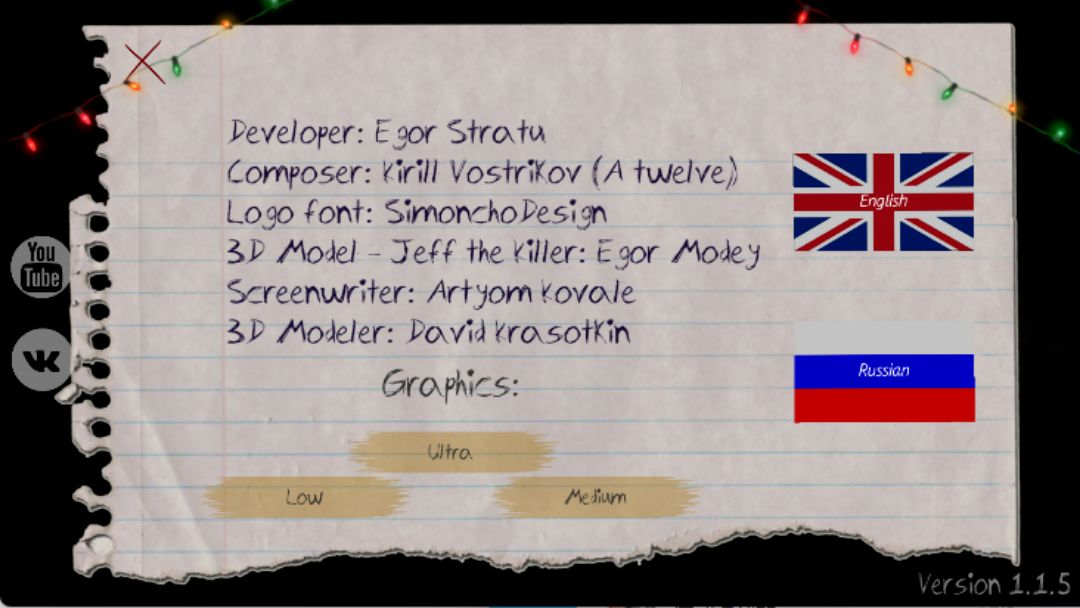 Developer: Egor Stratu
Composer: Kirill Vostrikov (A twelve)
Logo font: SimonchoDesign
3D Model - Jeff the Killer: Egor Modey
Screenwriter: Artyom Kovale
3D Modeler: David Krasotkin
Graphics:
Ultra
Low
Medium
English
Russian
You
Tube
Version 1.1.5